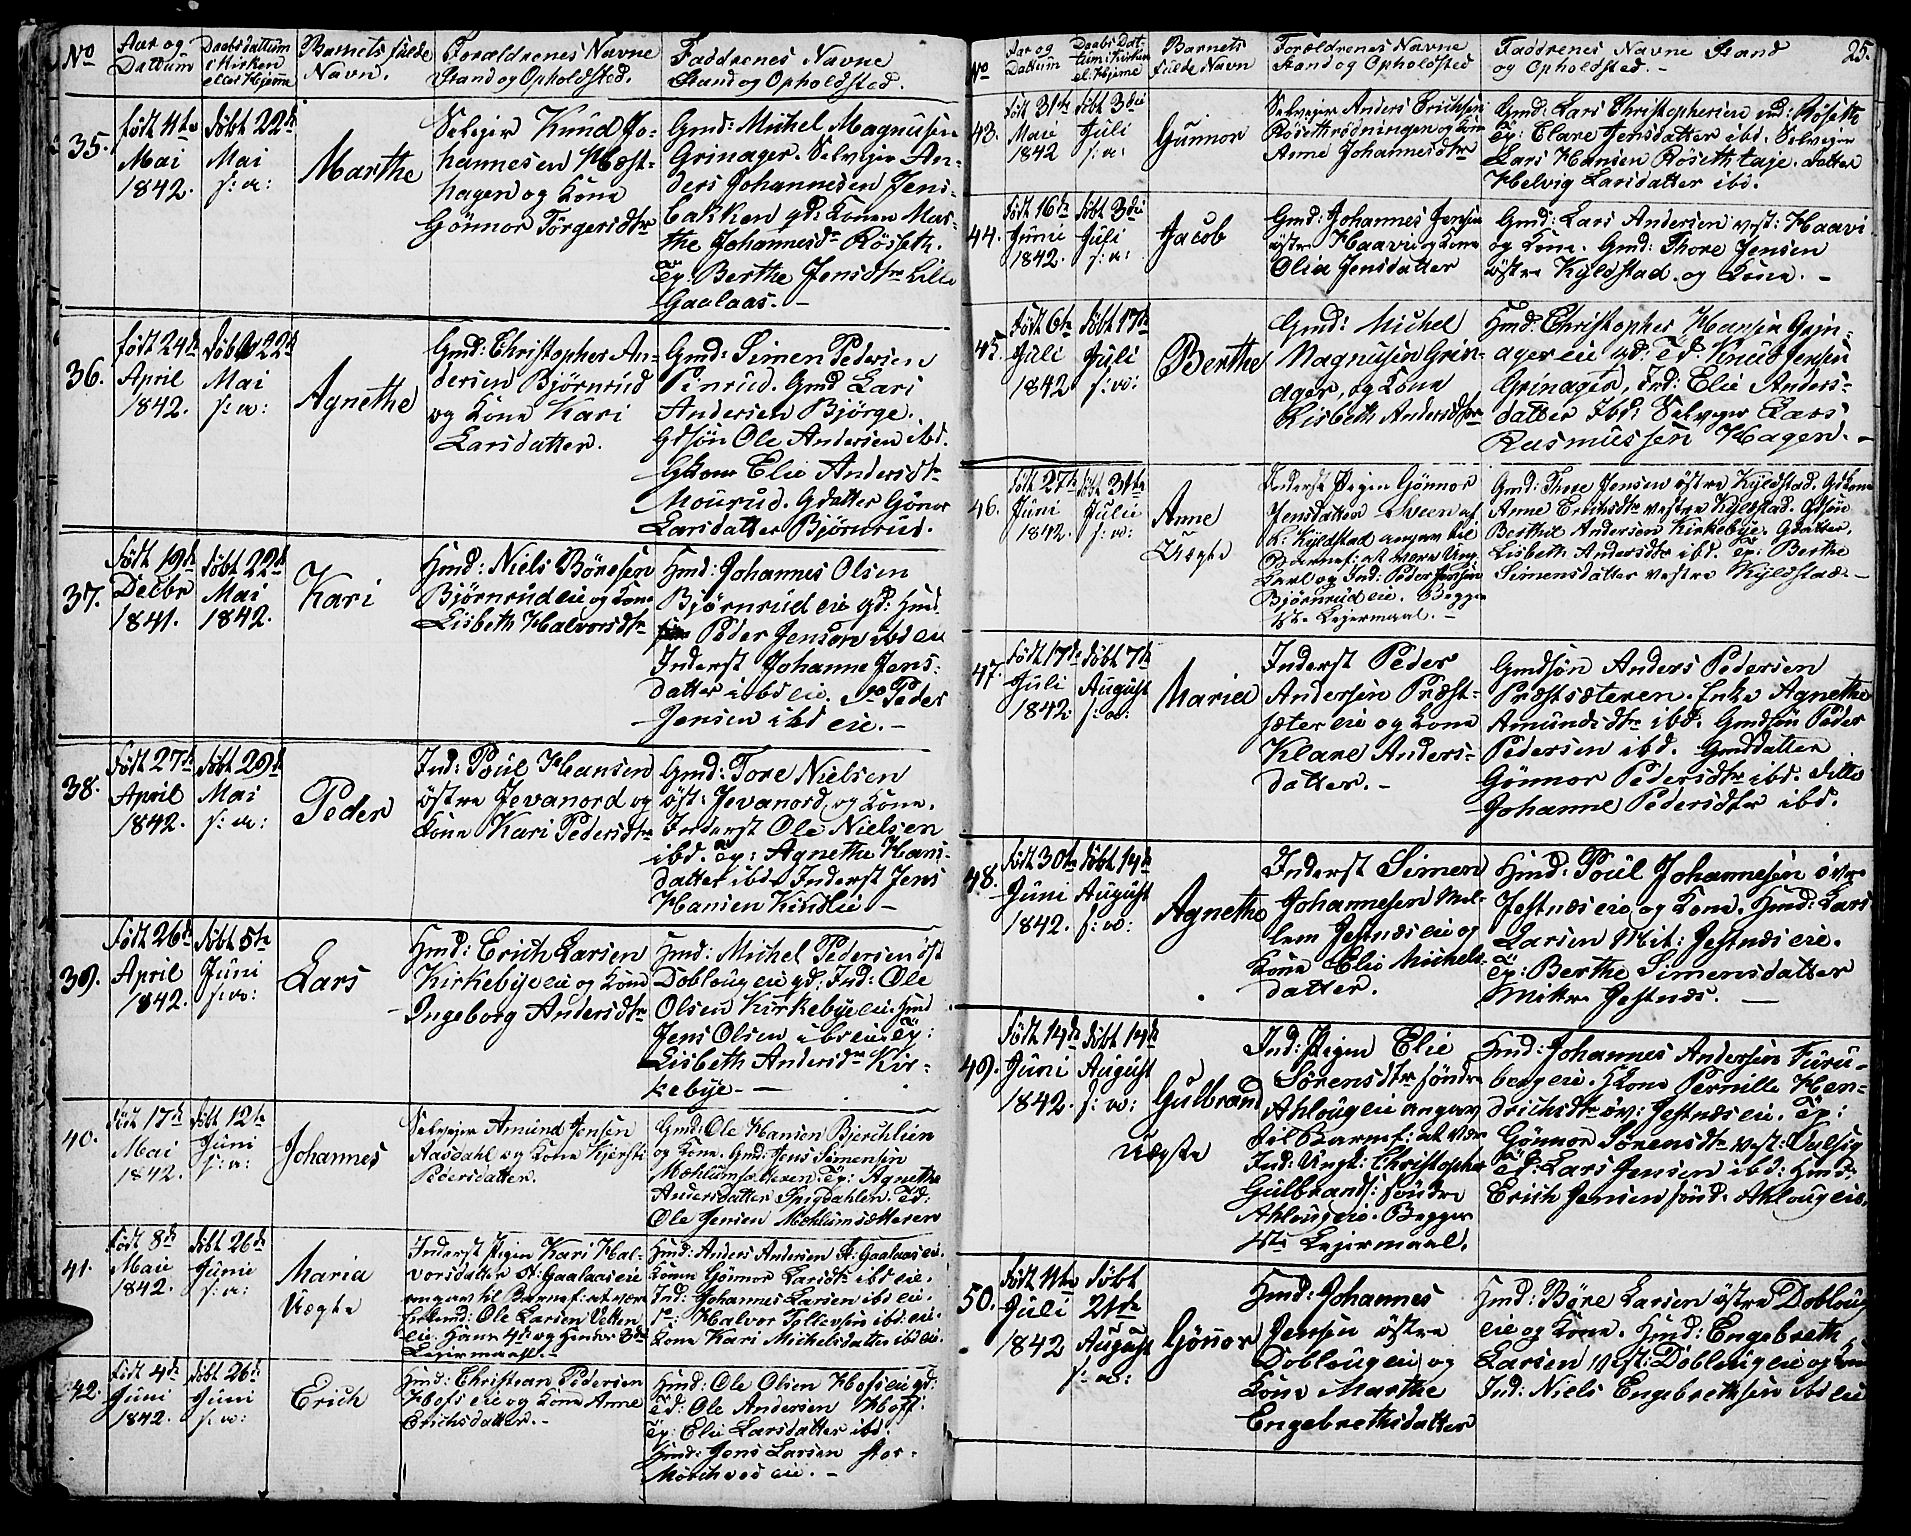 No
Aar og
Dattum
Daabsdattum
i Kirken
eller Hjeme
Barnets fulde
Navn.
Forældrenes Navne
Stand og Opholdsted.
Faddrenes Navne
Stand og Opholdsted.
35.
født 4te
Mai
1842.
døbt 22d
Mai
s: a:
Marthe
Selvejer Knud Jo-
hannesen Hæst-
hagen og Kone
Gönnor Torgersdtr
Gmd: Michel Magnusen
Grinager. Selvejer An-
ders Johannesen Jens-
bakken gd: Konen Mar-
the Johannesdr Röseth.
Tp: Berthe Jensdtr Lille
Gaalaas. —
36.
født 24d
April
1842.
døbt 22d
Mai
s: a:
Agnethe
Gmd: Christopher An-
dersen Bjørnrud
og Kone Kari
Larsdatter.
Gmd: Simen Pedersen
Pinrud. Gmd Lars
Andersen Bjørge.
Gdsøn Ole Andersen ibd.
Gkone Elie Andersdtr
Mourud. Gdatter Gönor
Larsdatter Bjørnrud.
37.
Født 19de
Decbr
1841.
døbt 22d
Mai
1842.
Kari
Hmd: Niels Böresen
Bjørnrudeie og Kone
Lisbeth Halvorsdtr
Hmd: Johannes Olsen
Bjørnrudeie gd: Hmd.
Peder Jensen ibdeie
Inderst Johanne Jens-
datter ibdeie. Peder
Jensen ibdeie. —
38.
Født 27d
April
1842.
døbt 29d
Mai
s: a:
Peder
Ind: Poul Hansen
østre Jevanord og
Kone Kari Pedersdtr
Gmd: Tore Nielsen
øst: Jevanord, og Kone.
Inderst Ole Nielsen
ibd. Tp: Agnethe Hans-
datter ibd. Inderst Jens
Hansen Kindlie. —
39.
Født 26d
April
1842.
døbt 5te
Juni
s: a:
Lars
Hmd: Erich Larsen
Kirkebyeeie og Kone
Ingeborg Andersdtr
Hmd: Michel Pedersen öst
Doblougeie gd: Ind: Ole
Olsen Kirkebyeeie. Hmd
Jens Olsen ibdeie. Tp:
Lisbeth Andersdr Kir-
kebye. —
40.
Født 17d
Mai
1842.
døbt 12te
Juni
s: a:
Johannes
Selvejer Amund Jensen
Aasdahl og Kone Kjersti
Pedersdatter.
Gmd: Ole Hansen Bjerchlien
og Kone. Gmd: Jens Simensen
Mohlumsæteren. Tp: Agnethe
Andersdatter Snigdahlen. Td:
Ole Jensen Mohlumsætteren
41.
Født 8de
Mai
1842.
døbt 26de
Juni
s: a:
Maria
Uægte
Inderst Pigen Kari Hal-
vorsdatter St: Gaalaaseie
angav til Barnef: at være
Ole Larsen Vetten
eie. Hans 4de og Hendes 3de
Lejermaal. —
Hmd: Anders Andersen St: Gaalaaseie.
Konen Gönnor Larsdtr ibdeie.
Ind: Johannes Larsen ibdeie.
Halvor Tollevsen ibdeie.
Kone Kari Michelsdatter ibdeie.
42.
Født 4de
Juni
1842.
døbt 26de
Juni
s: a:
Erich
Hmd: Christian Pedersen
Hofseie og Kone Anne
Erichsdatter. —
Hmd: Ole Olsen Hofseie gd:
Td: Ole Andersen Hof.
Tp: Elie Larsdatter ibd.
Hmd: Jens Larsen Stor-
Mörchvedeie. —
25.
No
Aar og
Dattum
Daabs Dat-
tum i Kirken
el: Hjeme
Barnets
fulde Navn
Forældrenes Navne
Stand og Opholdsted
Faddrenes Navne Stand
og Opholdsted. —
43.
født 31te
Mai
1842
døbt 3die
Juli
s: a:
Gunnor
Selvejer Anders Erichsen
Rösethrødningen og Kone
Anne Johannesdtr
Gmd: Lars Christophersen nd: Röseth
Tp: Clare Jensdatter ibd. Selvejer
Lars Hansen Röseth. datter
Helvig Larsdatter ibd.
44.
født 16de
Juni
1842.
døbt 3die
Juli
s: a:
Jacob
Gmd: Johannes Jensen
østre Haavi og Kone
Olia Jensdatter
Gmd: Lars Andersen vest: Haavi
og Kone. Gmd: Thore Jensen
østre Kyldstad og Kone. —
45.
født 6te
Juli
1842
døbt 17de
Juli
s: a:
Berthe
Gmd: Michel
Magnusen Grin-
ager, og Kone
Lisbeth Andersdtr
Hmd: Christopher Hansen Grin-
agereie gd: Td Knud Jensen
Grinager, Ind: Elie Anders-
datter Ibd: Selvejer Lars
Rasmussen Hagen. —
46.
født 27de
Juni
1842.
døbt 31te
Juli
s: a:
Anne
Uægte
Inderst Pigen Gönnor
Jensdatter Sveen af
V: Kyldstad angav til
Barnef: at være Ung-
karl og Ind: Peder Jensen
Bjørnrudeie. Begges
1ste Lejermaal. —
Gmd: Thore Jensen østre Kyldstad. Gdkone
Anne Erichsdtr vestre Kyldstad. Gdsøn
Berthel Andersen Kirkebye. Gdatter
Lisbeth Andersdtr ibd. Tp: Berthe
Simensdatter vestre Kyldstad. —
47.
Født 17de
Juli
1842.
døbt 7de
August
s: a:
Maria
Inderst Peder
Andersen Præst-
sætereie og Kone
Klare Anders-
datter. —
Gmdsøn Anders Pedersen
Præstsæteren. Enke Agnethe
Amundsdtr ibd. Gmdsøn Peder
Pedersen ibd. Gmddatter
Gönnor Pedersdtr ibd. ditto
Johanne Pedersdtr ibd.
48.
Født 30te
Juni
1842.
døbt 14de
August
s: a:
Agnethe
Inderst Simen
Johannesen Mel-
lem Jestnæseie og
Kone Elie Michels-
datter.
Hmd: Poul Johannesen övre
Jestnæseie og Kone. Hmd: Lars
Larsen Mit: Jestnæseie.
Tp: Berthe Simensdatter
Mitre Jestnæs. —
49.
Født 14de
Juni
1842.
døbt 14de
August
s: a:
Gulbrand
Uægte
Ind: Pigen Elie
Sörensdtr søndre
Ahlougeie angav
til Barnef: at være
Ind: Ungk: Christopher
Gulbrands: søndre
Ahlougeie. Begges
1ste Lejermaal.
Hmd: Johannes Andersen Furu-
bergeie. HKone Pernille Hen-
drichsdtr öv: Jestnæseie. Tp:
Gönnor Sörensdtr vest: Ovlsig
Td: Lars Jensen ibd: Hmd:
Erich Jensen sönd. Ahlougeie.
50.
Født 4te
Juli
1842
døbt
21de
August
s: a:
Gönnor
Hmd: Johannes
Jensen østre
Doblougeie og
Kone Marthe
Engebrethsdatter
Hmd: Böre Larsen østre Dobloug
eie og Kone. Hmd: Engebreth
Larsen vest: Doblougeie og Kone
Ind: Niels Engebrethsen ibdeie